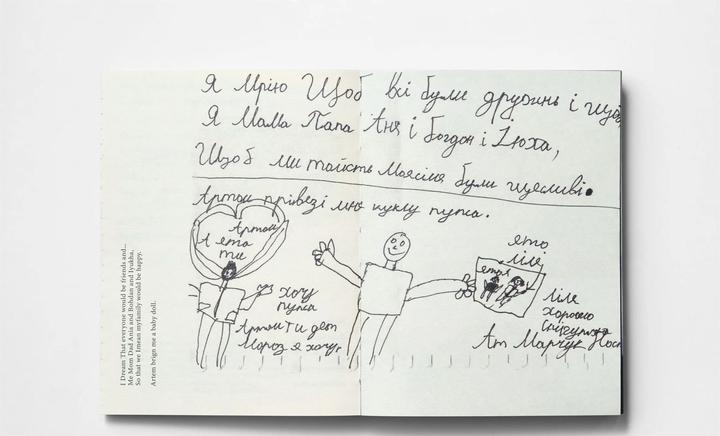 Я Мрію Щоб всі були дружинь і щоб
Я Мама Папа Аня і Богдан і Іюха,
Щоб ми тоїсть Моясімя були щесливі.
Артом прівезі мнє куклу пупса.
Артом
А ета
ти
хочу
пупса
Артом ти дет
Мороз я хочу
ето
Ліля
Ліля
хорошо
Ат Марчук
I Dream That everyone would be friends and...
Me Mom Dad Ania and Bohdan and Iyukha,
So that we Imean myfamily would be happy.
Artem brign me a baby doll.